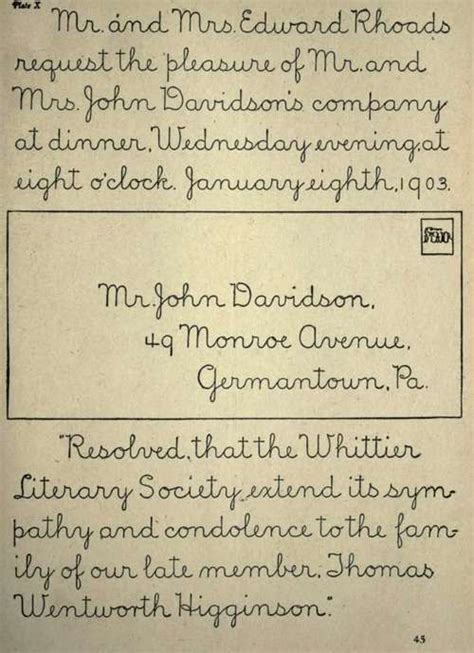 Plate X
Mr. and Mrs. Edward Rhoads
request the pleasure of Mr. and
Mrs. John Davidson's company
at dinner, Wednesday evening, at
eight o'clock. January eighth, 1903.
Mr. John Davidson,
49 Monroe Avenue,
Germantown, Pa.
"Resolved, that the Whittier
Literary Society extend its sym-
pathy and condolence to the fam-
ily of our late member, Thomas
Wentworth Higginson."
45